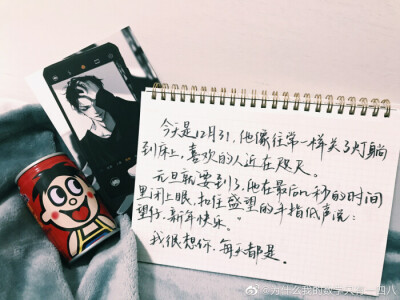 今天是12月31，他像往常一样关了灯躺
到床上，喜欢的人近在咫尺。
元旦就要到了，他在最后一秒的时间
里闭上眼，扣住盛望的手指低声说：
望仔，新年快乐。
我很想你，每天都是。